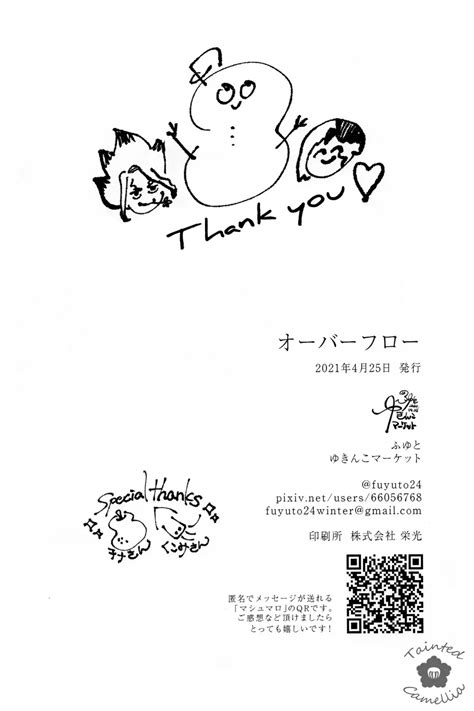 Thank you
オーバーフロー
2021年4月25日 発行
ゆきんこ
マーケット
ふゆと
ゆきんこマーケット
@fuyuto24
pixiv.net/users/66056768
fuyuto24winter@gmail.com
印刷所 株式会社 栄光
Special thanks
キナさん
くみさん
匿名でメッセージが送れる
「マシュマロ」のQRです。
ご感想など頂けましたら
とっても嬉しいです！
Tainted
Camellia